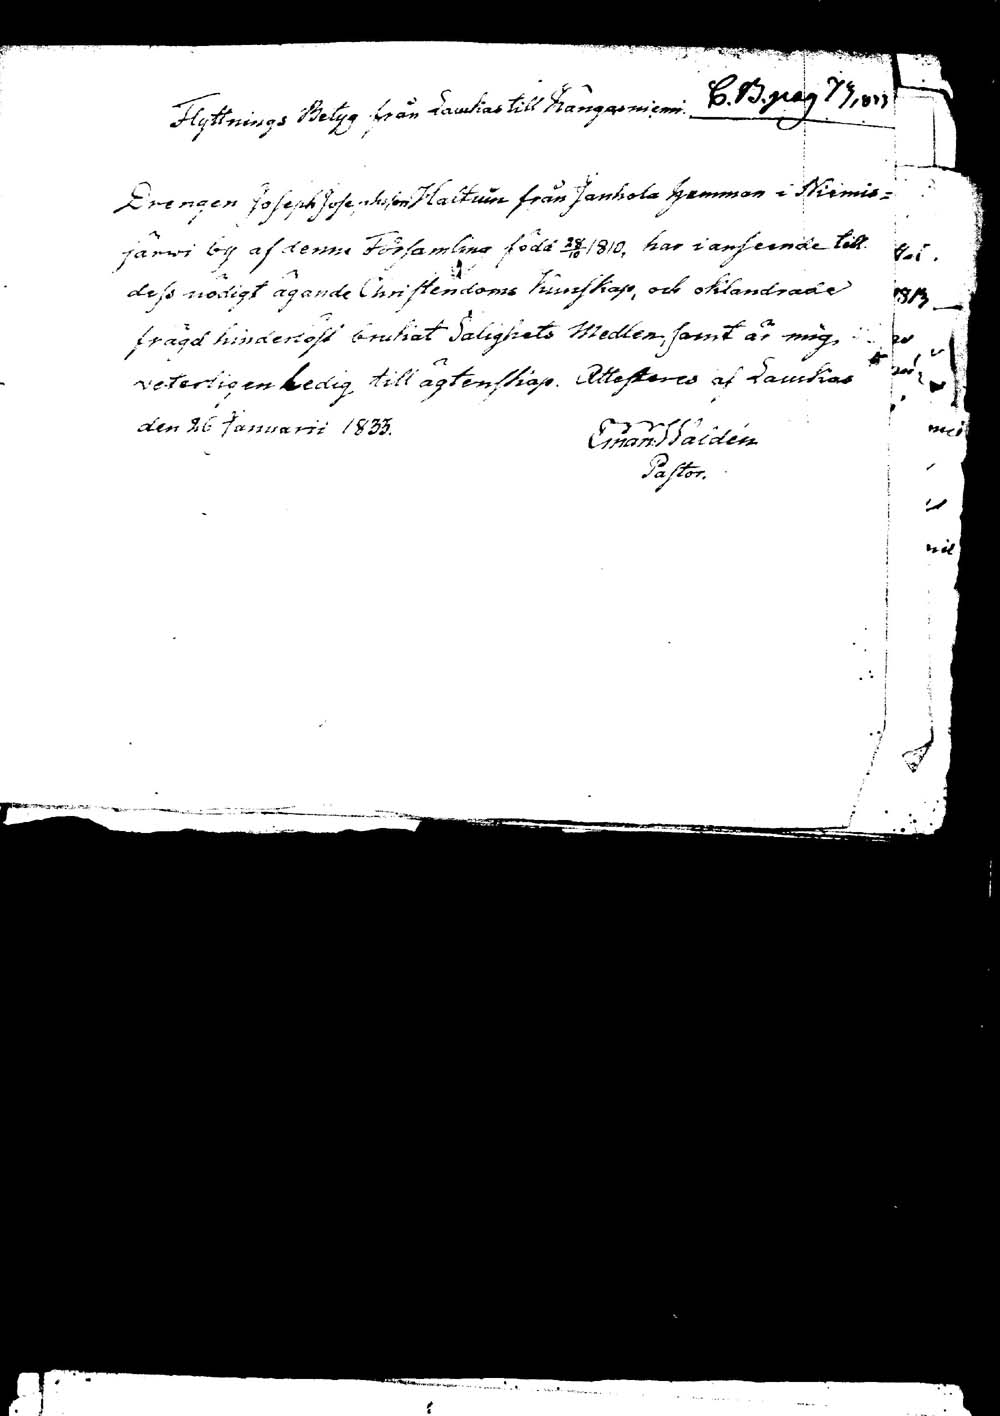 Flyttnings Betyg från Laukas till Kangasniemi. C. B. pag 73, 1833
Drengen Joseph Josephsson Hactuin från Janhola hemman i Niemis=
järwi by af denne Församling född 28/10 1810, har i anseende till
dess nödigt ägande Christendoms kunskap, och oklandrade
frägd hinderlöst brukat Salighets Medlen, samt är mig
veterligen Ledig till ägtenskap. Attesteres af Laukas
den 26 Januarii 1833.
Eman Walden
Pastor.